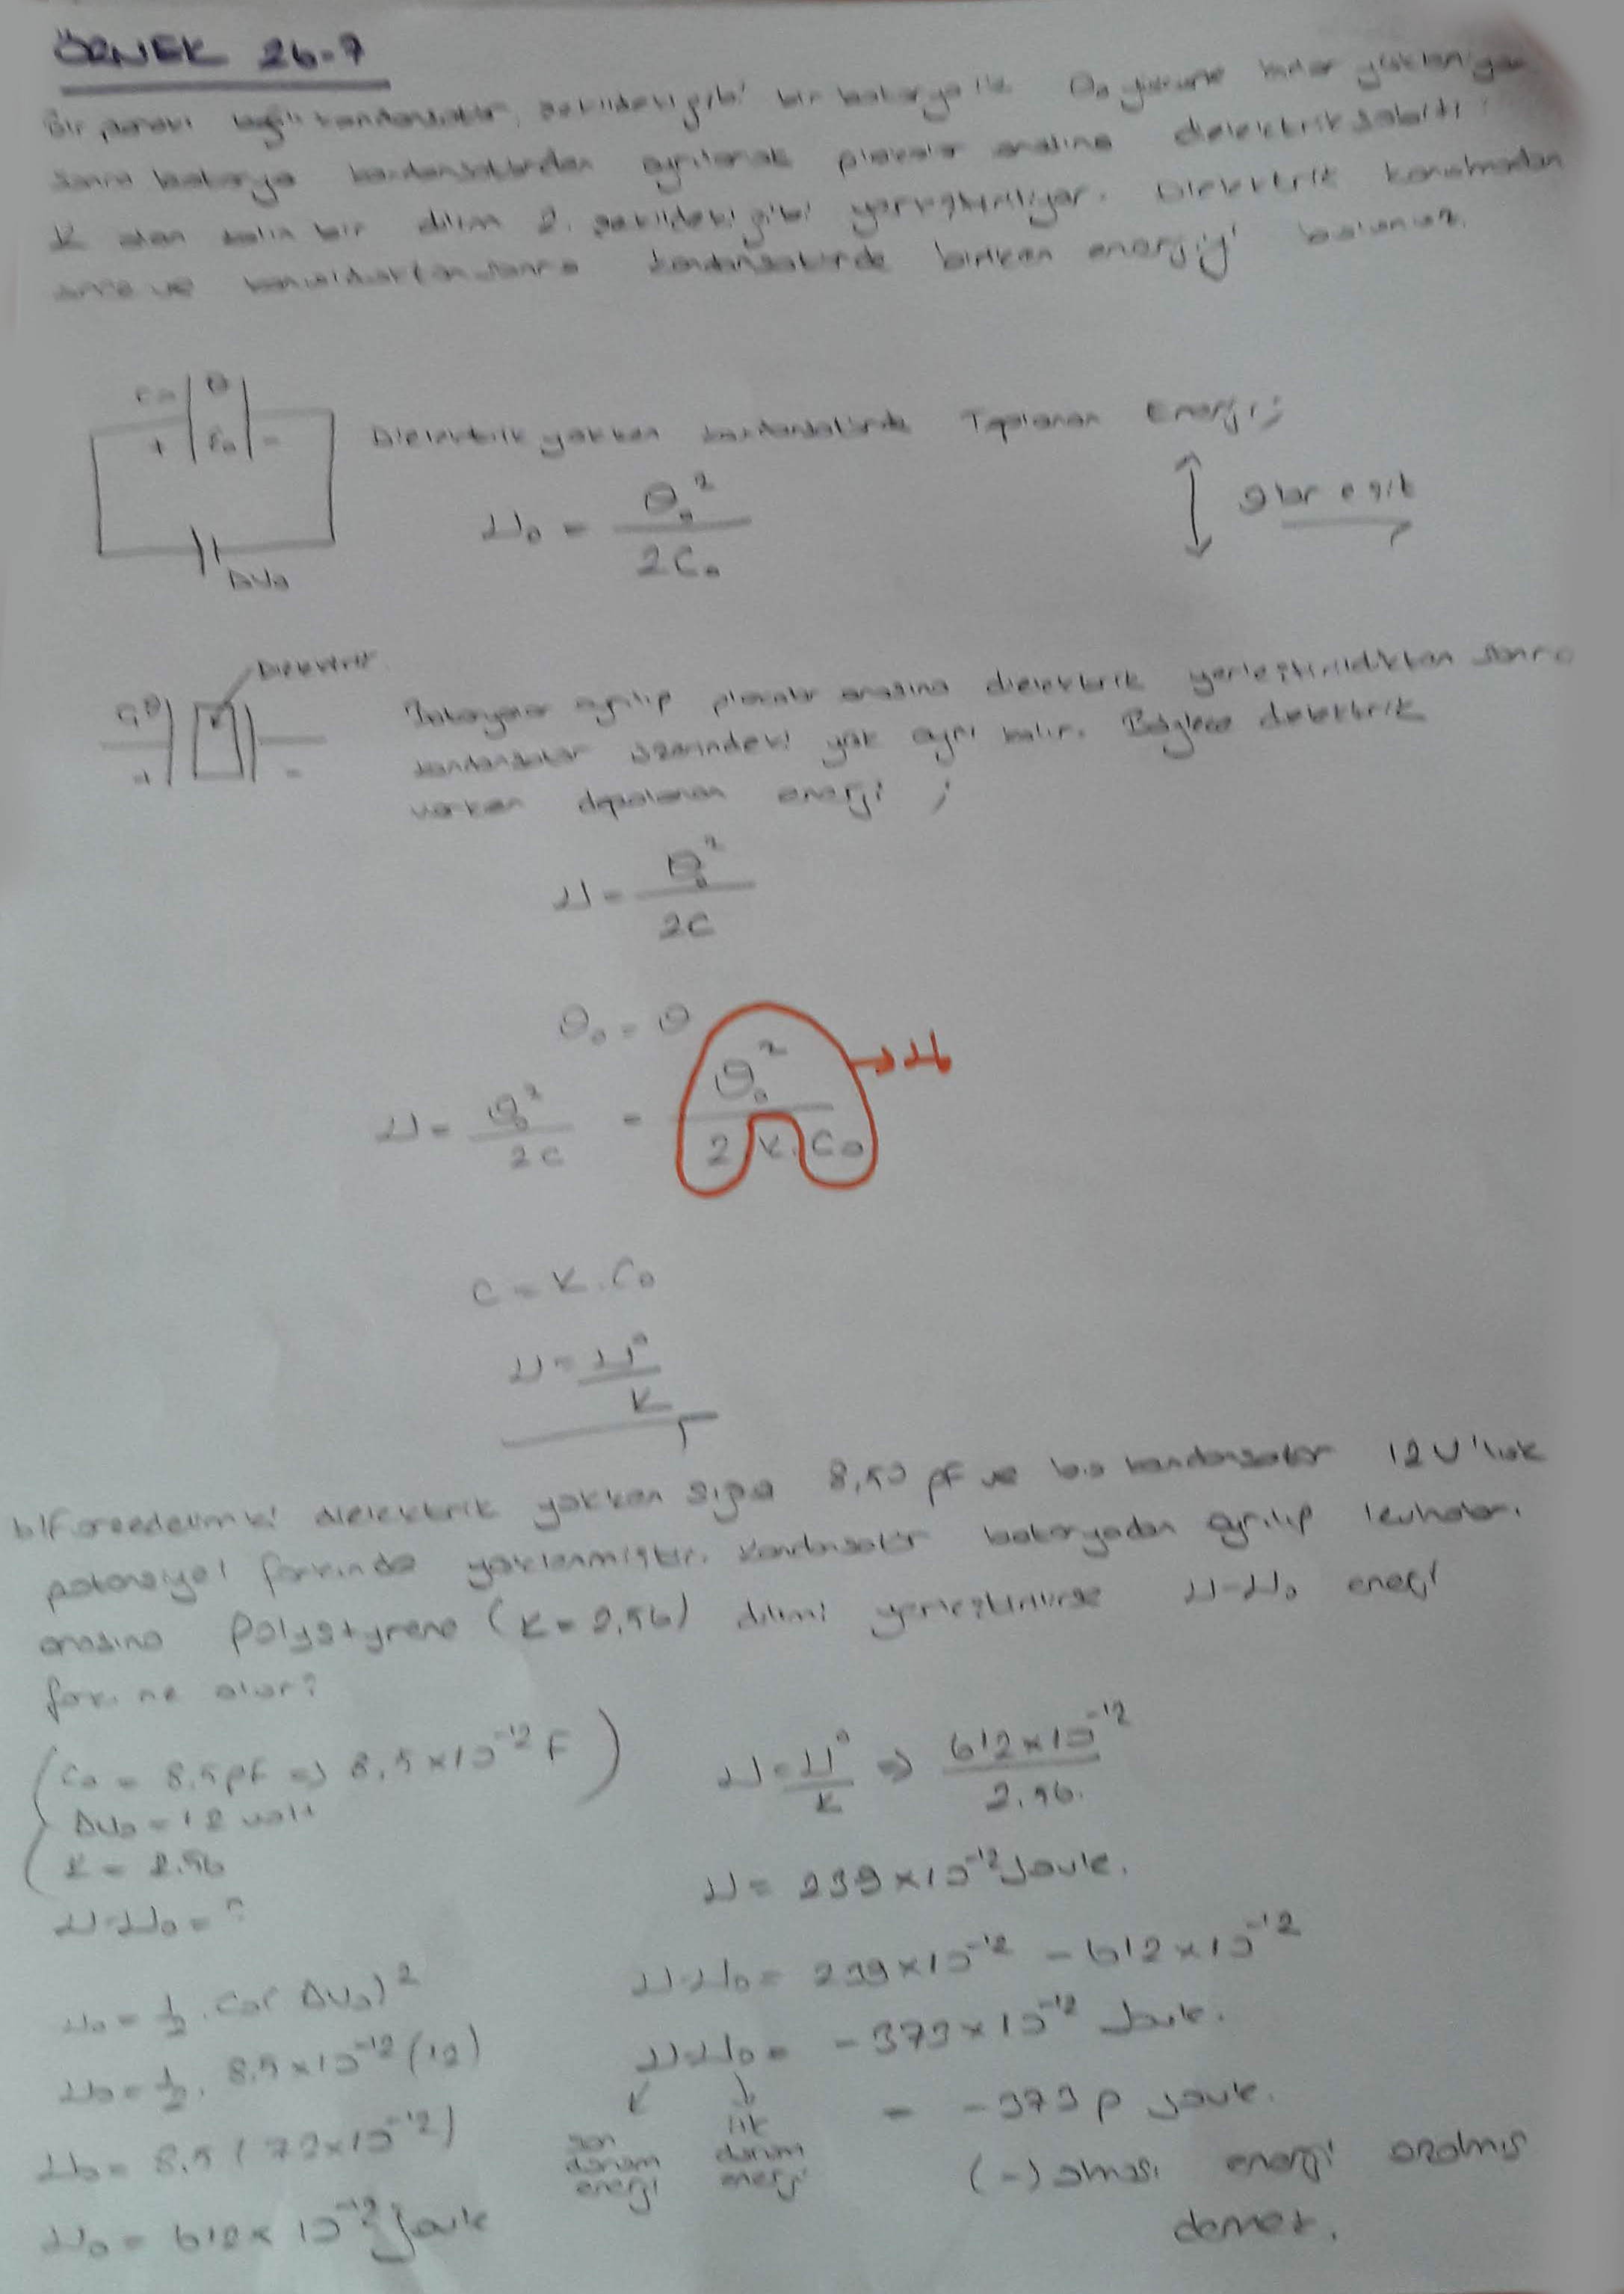 ÖRNEK 26-7
Bir paralel bağlı kondansatör, şekildeki gibi bir batarya ile Q₀ yüküne kadar yükleniyor
sonra batarya kondansatörden ayrılarak plakalar arasına dielektrik sabiti
K olan kalın bir dilim 2. şekildeki gibi yerleştiriliyor. Dielektrik konulmadan
önce ve konulduktan sonra kondansatörde biriken enerjiyi bulunuz.
C₀ Q
+ E₀ -
ΔV₀
Dielektrik yokken kondansatörde Toplanan Enerji;
U₀ = Q₀² / 2C₀
Dielektrik
+ -
Bataryalar ayrılıp plakalar arasına dielektrik yerleştirildikten sonra
kondansatör üzerindeki yük aynı kalır. Böylece dielektrik
varken depolanan enerji ;
U = Q₀² / 2C
Q₀ = Q
U = Q₀² / 2C = Q₀² / 2 K. C₀ → U₀
C = K.C₀
U = U₀ / K
b) Farzedelim ki dielektrik yokken sığa 8,50 pF ve bu kondansatör 12 V'luk
potansiyel farkında yüklenmiştir. Kondansatör bataryadan ayrılıp levhalar
arasına Polystyrene (K = 2,56) dilimi yerleştirilirse U-U₀ enerji
farkı ne olur?
C₀ = 8.5 pF => 8,5 x 10⁻¹² F
ΔV₀ = 12 volt
K = 2.56
U-U₀ = ?
U₀ = 1/2 . C₀ (ΔV₀)²
U₀ = 1/2 . 8.5 x 10⁻¹² (12)
U₀ = 8.5 (72 x 10⁻¹²)
U₀ = 612 x 10⁻¹² Joule
U = U₀ / K => 612 x 10⁻¹² / 2.56
U = 239 x 10⁻¹² Joule.
U-U₀ = 239 x 10⁻¹² - 612 x 10⁻¹²
U-U₀ = -373 x 10⁻¹² Joule.
son durum enerji
ilk durum enerji
= -373 p Joule.
(-) olması enerji azalmış
demek.